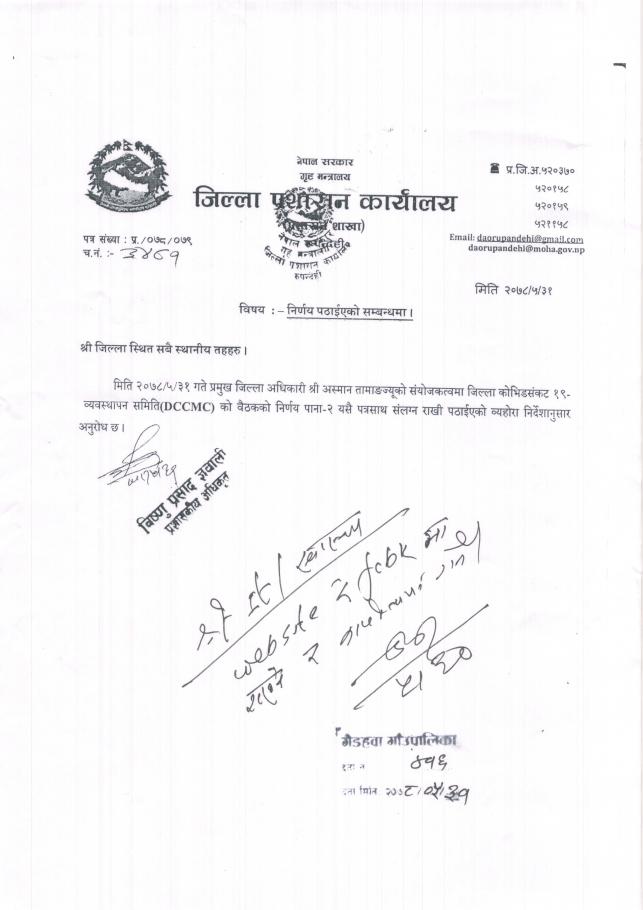 नेपाल सरकार
गृह मन्त्रालय
जिल्ला प्रशासन कार्यालय
(प्रशासन शाखा)
रुपन्देही
☎ प्र.जि.अ.५२०३७०
५२०१५८
५२०१५९
५२११५८
Email: daorupandehi@gmail.com
daorupandehi@moha.gov.np
नेपाल सरकार
गृह मन्त्रालय
जिल्ला प्रशासन कार्यालय
रुपन्देही
पत्र संख्या : प्र./०७८/०७९
च.नं. :-
मिति २०७८/५/३१
विषय : – निर्णय पठाईएको सम्बन्धमा ।
श्री जिल्ला स्थित सबै स्थानीय तहहरु ।
मिति २०७८/५/३१ गते प्रमुख जिल्ला अधिकारी श्री अस्मान तामाङज्यूको संयोजकत्वमा जिल्ला कोभिडसंकट १९-
व्यवस्थापन समिति(DCCMC) को वैठकको निर्णय पाना-२ यसै पत्रसाथ संलग्न राखी पठाईएको व्यहोरा निर्देशानुसार
अनुरोध छ ।
विष्णु प्रसाद ज्ञवाली
प्रशासकीय अधिकृत
श्री
website र fcbk मा
र
गैडहवा गाँउपालिका
दर्ता नं ४१६
दर्ता मिति २०७८/०५/३१